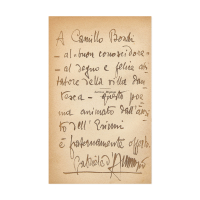 A Camillo Bondi
- al « buon conoscidore »
- al degno e felice abi-
tatore della villa dan-
tesca - questo poe-
ma animato dall'an
to dell' Erinni
è fraternamente offerto.
Gabriele d'Annunzio